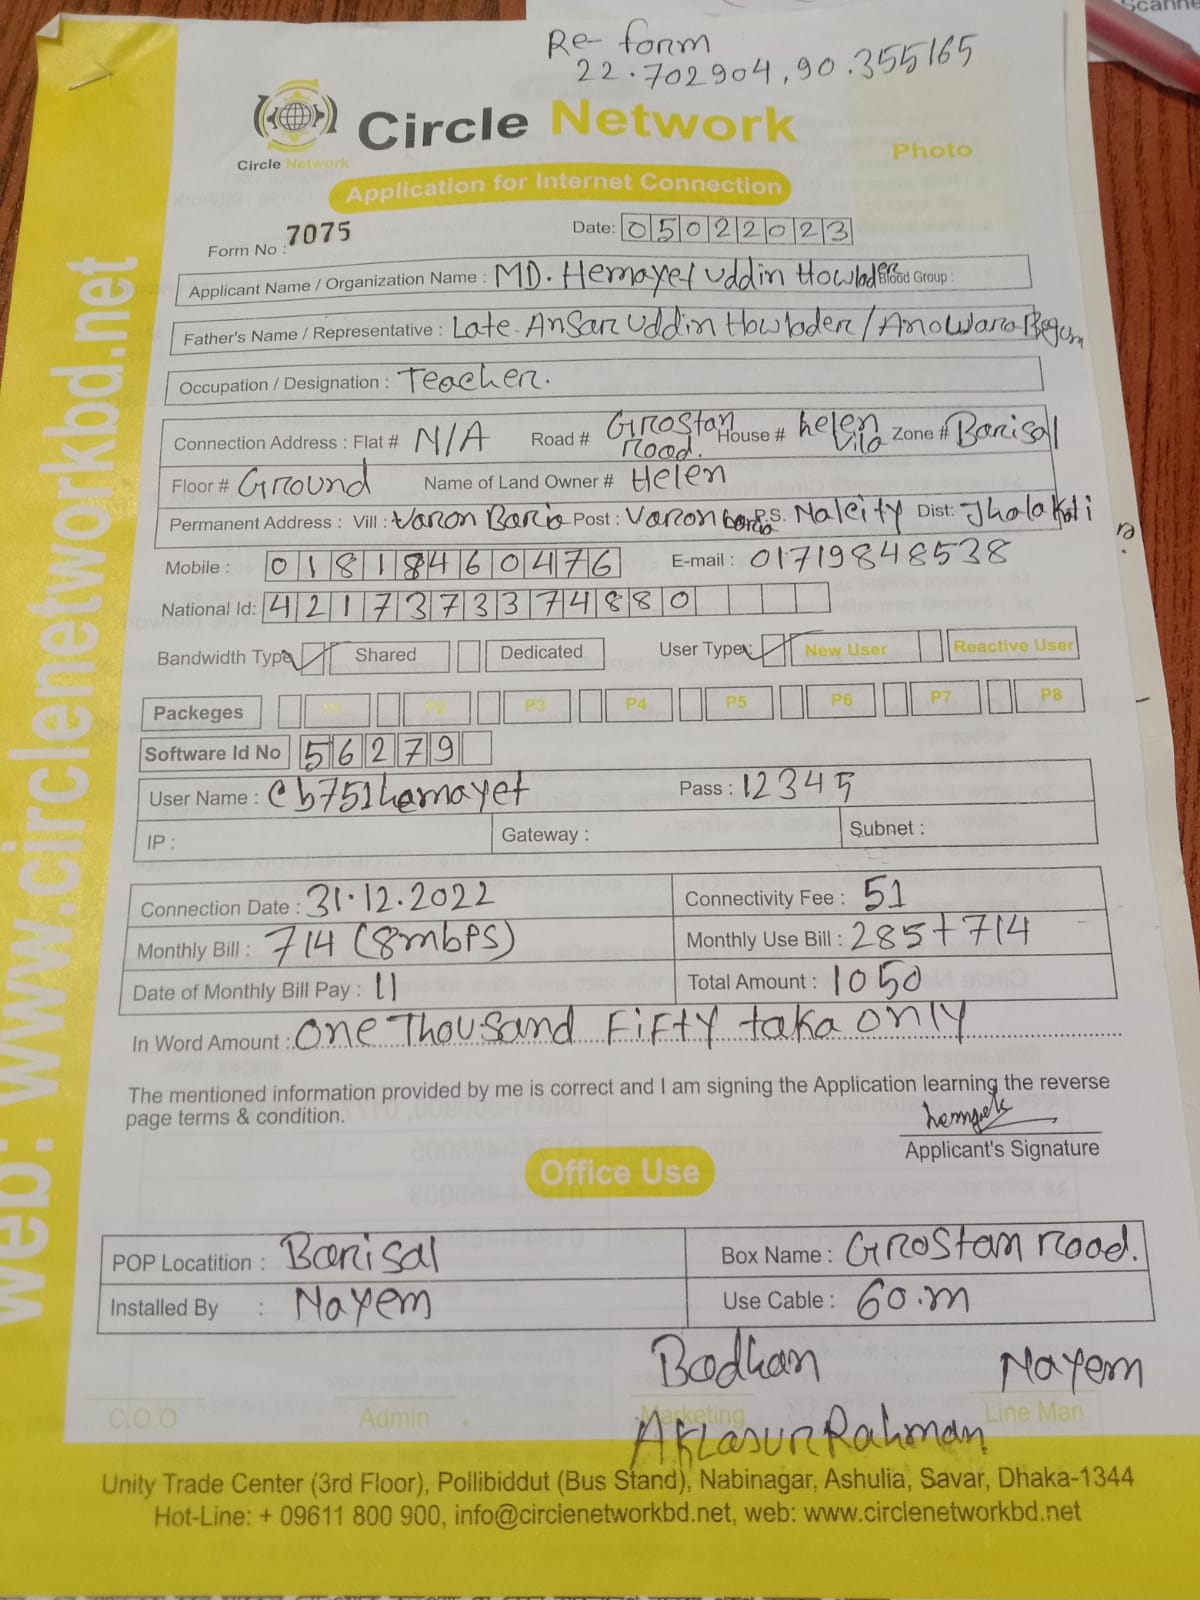 Scanne
Re- form
22.702904, 90.355165
Circle Network
Circle Network
Photo
Application for Internet Connection
Form No : 7075
Date: 05022023
Applicant Name / Organization Name : MD. Hemayet Uddin Howlader Blood Group :
Father's Name / Representative : Late-Ansar Uddin Howlader / Anowara Begum
Occupation / Designation : Teacher.
Connection Address : Flat # N/A Road # Grostan Road. House # helen Vila Zone # Barisal
Floor # Ground Name of Land Owner # Helen
Permanent Address : Vill : Varon Baria Post : Varon baria P.S. Nalcity Dist: Jholakati
Mobile : 01818460476 E-mail : 01719848538
National Id: 4217373374880
Bandwidth Type: Shared Dedicated User Type: New User Reactive User
Packeges P1 P2 P3 P4 P5 P6 P7 P8
Software Id No 56279
User Name : cb751hemayet Pass : 12345
IP : Gateway : Subnet :
Connection Date : 31.12.2022 Connectivity Fee : 51
Monthly Bill : 714 (8mbps) Monthly Use Bill : 285+714
Date of Monthly Bill Pay : 11 Total Amount : 1050
In Word Amount : One Thousand Fifty taka only
The mentioned information provided by me is correct and I am signing the Application learning the reverse
page terms & condition.
Applicant's Signature
Office Use
POP Locatition : Barisal Box Name : Grostan Road.
Installed By : Nayem Use Cable : 60.m
Bodhan Nayem
C.O.O Admin Marketing Line Man
Aklasur Rahman
Unity Trade Center (3rd Floor), Pollibiddut (Bus Stand), Nabinagar, Ashulia, Savar, Dhaka-1344
Hot-Line: + 09611 800 900, info@circlenetworkbd.net, web: www.circlenetworkbd.net
web: www.circlenetworkbd.net